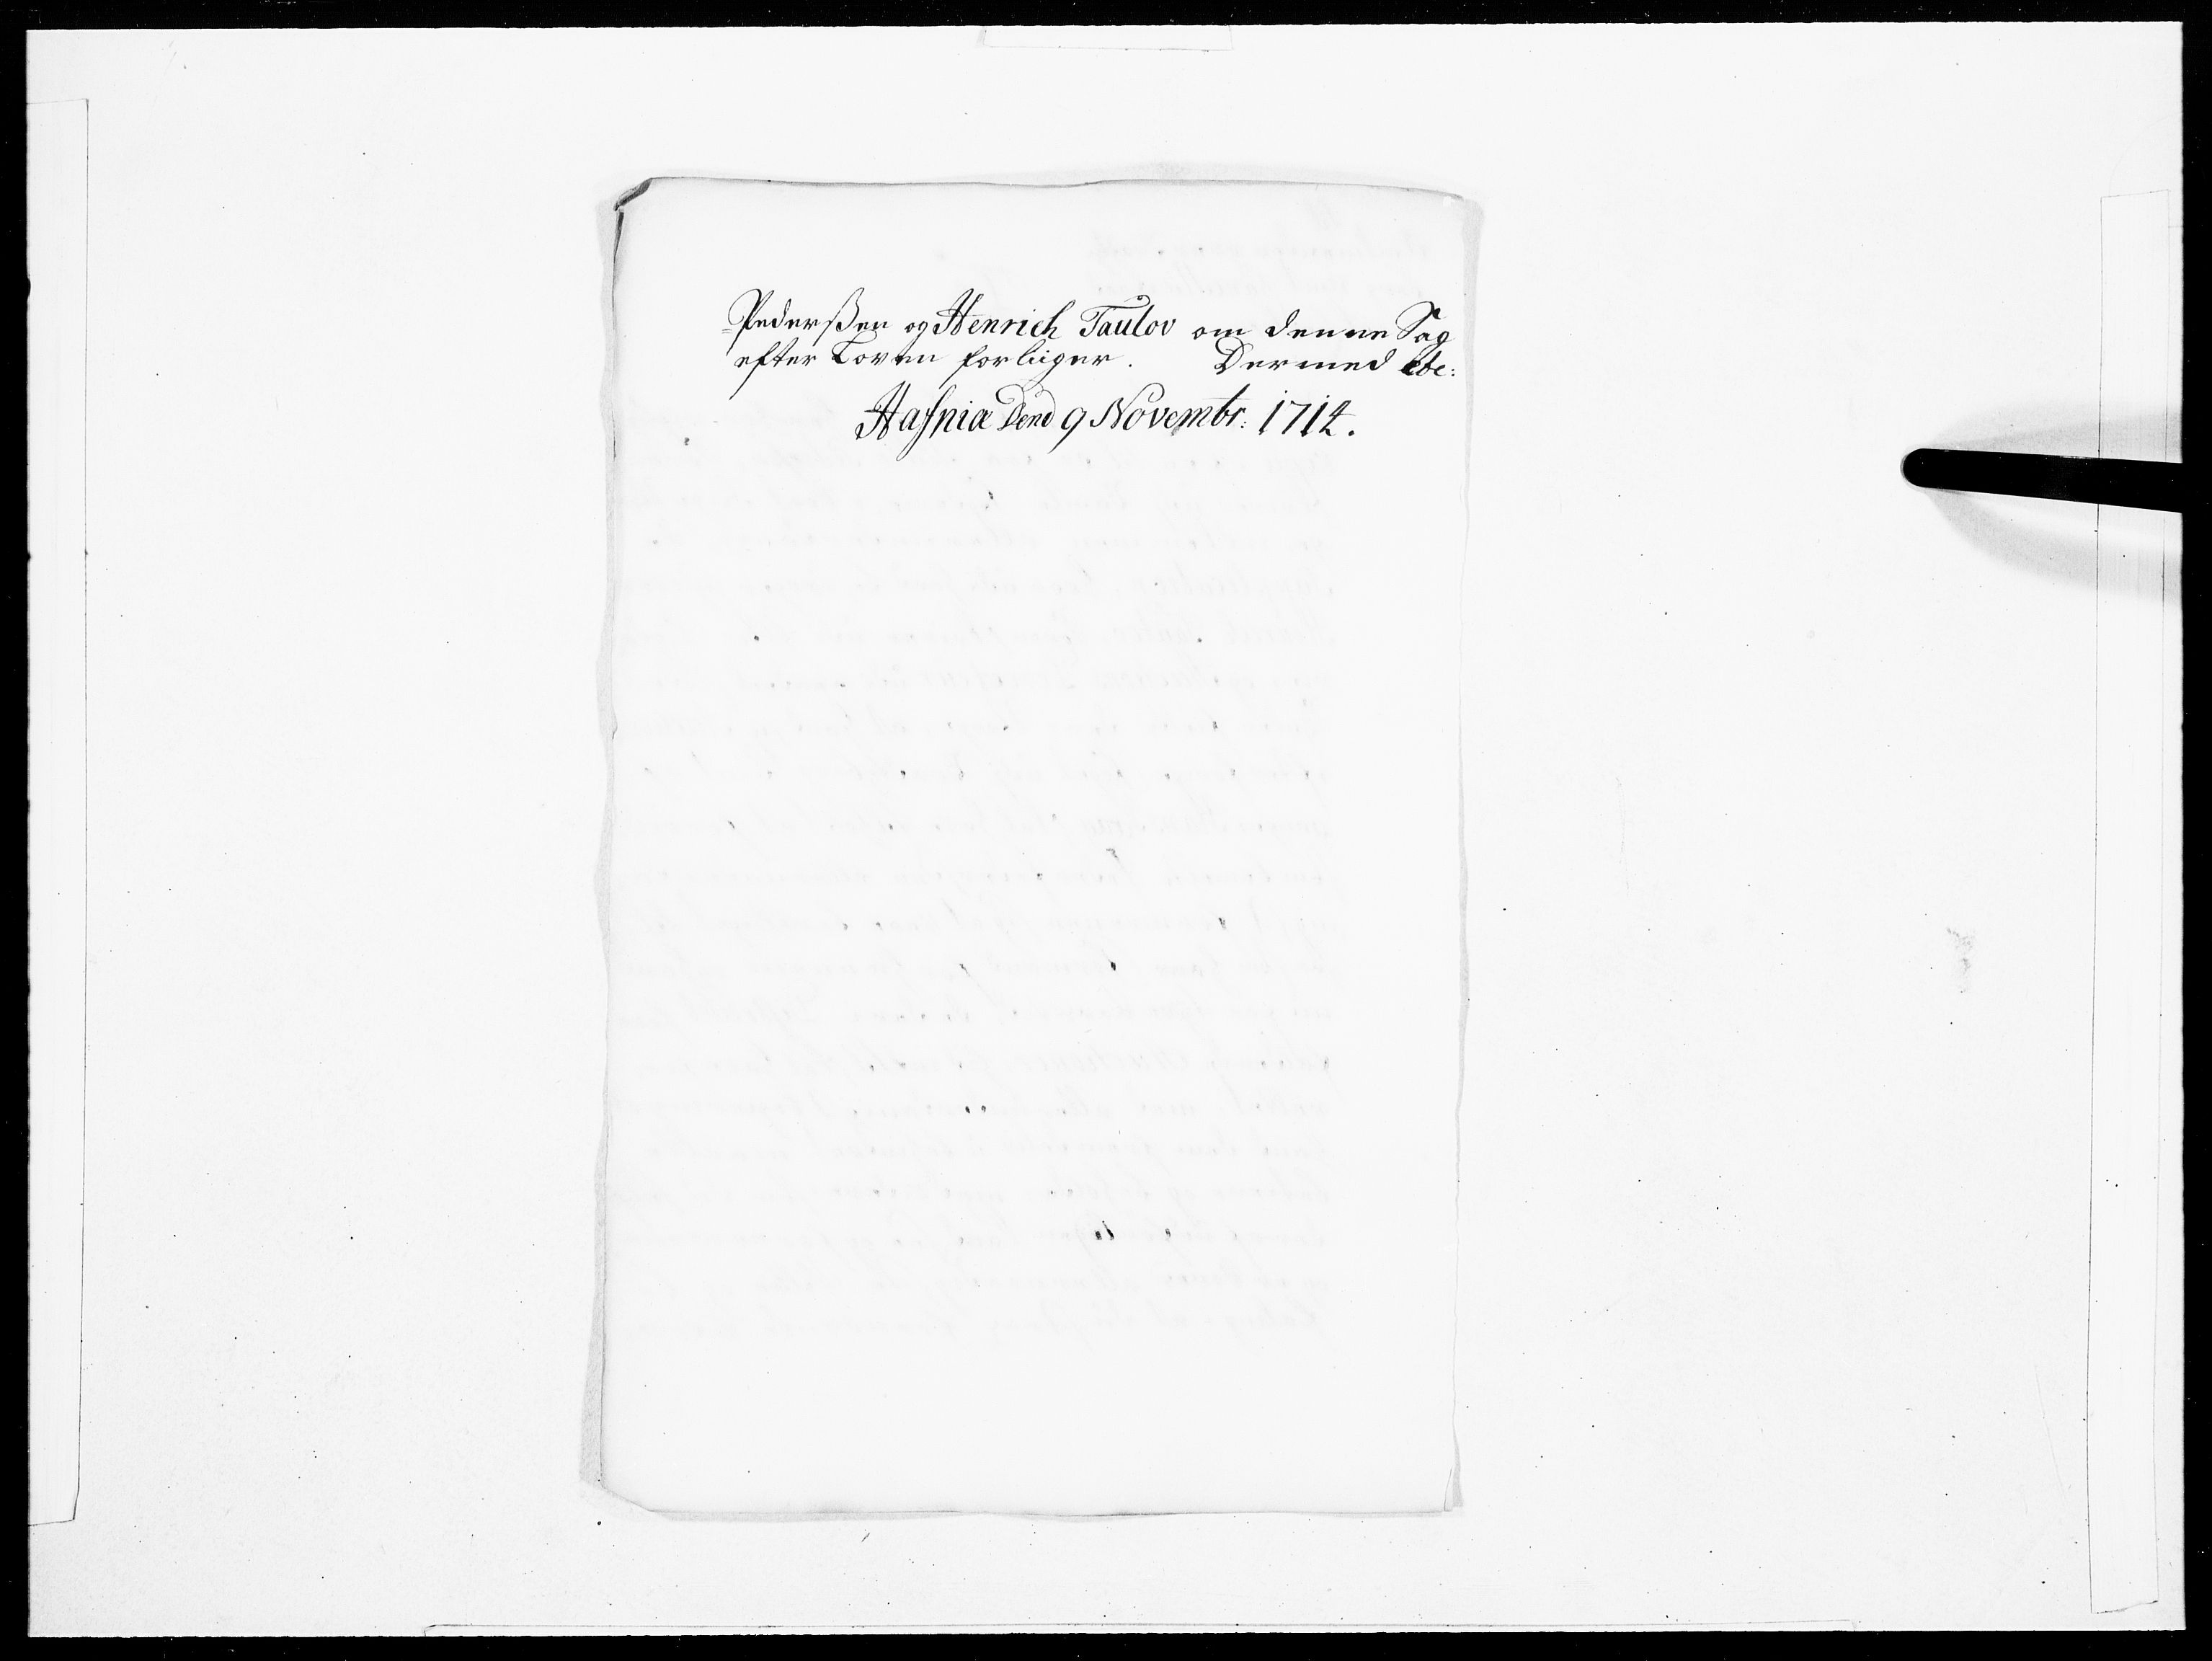 Pederßen og Henrich Taulov om denne Sag
efter Loven forliiger. Dermed etc:
Hafniæ Dend 9 Novembr: 1714.